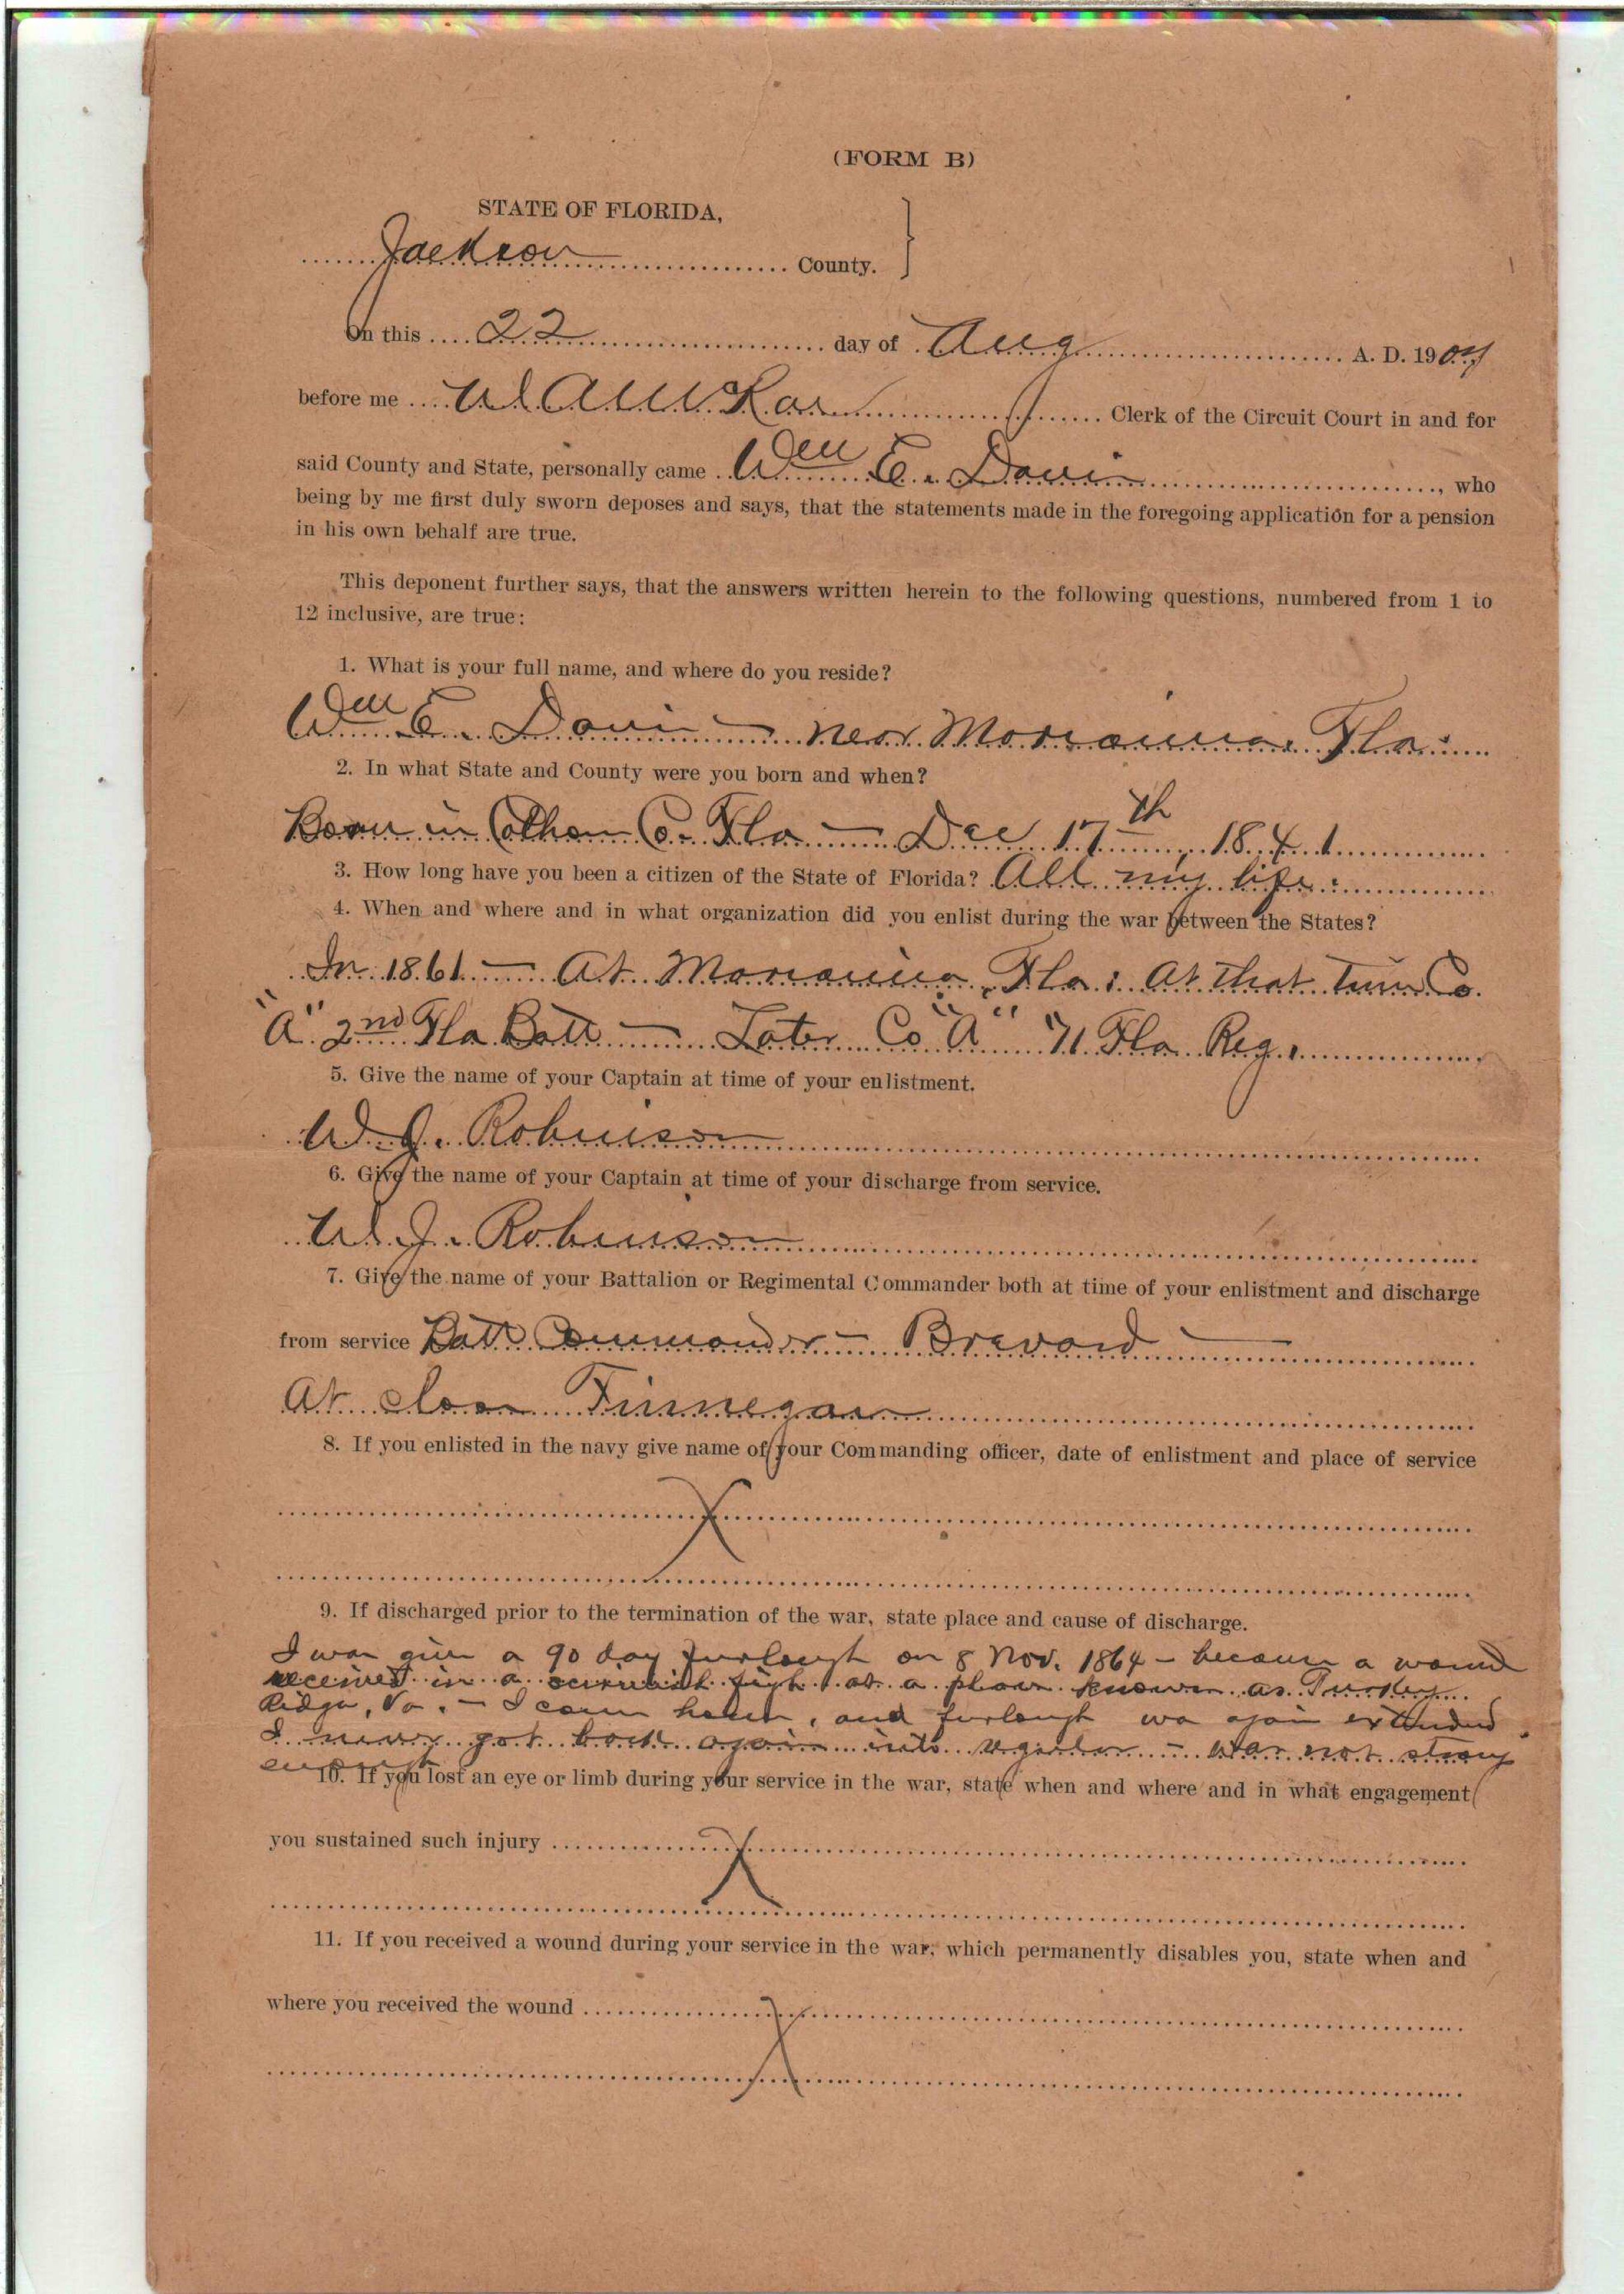 (FORM B)
STATE OF FLORIDA,
Jackson County.
On this 22 day of Aug A. D. 190
before me Clerk of the Circuit Court in and for
said County and State, personally came Wm E. Davis, who
being by me first duly sworn deposes and says, that the statements made in the foregoing application for a pension
in his own behalf are true.
This deponent further says, that the answers written herein to the following questions, numbered from 1 to
12 inclusive, are true:
1. What is your full name, and where do you reside?
Wm E. Davis — near Marianna. Fla.
2. In what State and County were you born and when?
Born in Calhoun Co. Fla — Dec 17th, 1841
3. How long have you been a citizen of the State of Florida? All my life.
4. When and where and in what organization did you enlist during the war between the States?
In 1861 — At Marianna, Fla: At that time Co.
"A" 2nd Fla Batt — Later Co "A" 11 Fla Reg.
5. Give the name of your Captain at time of your enlistment.
W. J. Robinson
6. Give the name of your Captain at time of your discharge from service.
W. J. Robinson
7. Give the name of your Battalion or Regimental Commander both at time of your enlistment and discharge
from service Batt Commander — Brevard —
At close Finnegan
8. If you enlisted in the navy give name of your Commanding officer, date of enlistment and place of service
X
9. If discharged prior to the termination of the war, state place and cause of discharge.
I was given a 90 day furlough on 8 Nov. 1864 — because a wound
received in a skirmish fight at a place known as Turkey
Ridge, Va. — I came home, and furlough was again extended.
I never got back again into regular — was not strong
enough
10. If you lost an eye or limb during your service in the war, state when and where and in what engagement
you sustained such injury X
11. If you received a wound during your service in the war, which permanently disables you, state when and
where you received the wound X